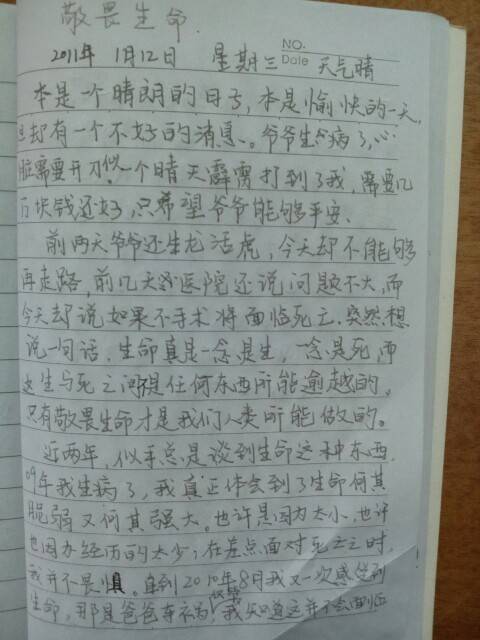 敬畏生命.
2011年 1月12日 星期三 NO. Date 天气晴
本是一个晴朗的日子,本是愉快的一天,
但却有一个不好的消息。爷爷生病了,心
脏需要开刀似一个晴天霹雳打到了我,需要几
万块钱还好,只希望爷爷能够平安。
前两天爷爷还生龙活虎,今天却不能够
再走路,前几天医院还说问题不大,而
今天却说如果不手术将面临死亡.突然想
说一句话,生命真是一念是生,一念是死,而
这生与死之间是任何东西所能逾越的。
只有敬畏生命才是我们人类所能做的。
近两年,似乎总是谈到生命这种东西.
09年我生病了,我真正体会到了生命何其
脆弱又何其强大。也许是因为太小,也许
也因为经历的太少,在差点面对死亡之时,
我并不畏惧。直到2010年8月我又一次感受到
生命,那是爸爸,我知道这并不会面临